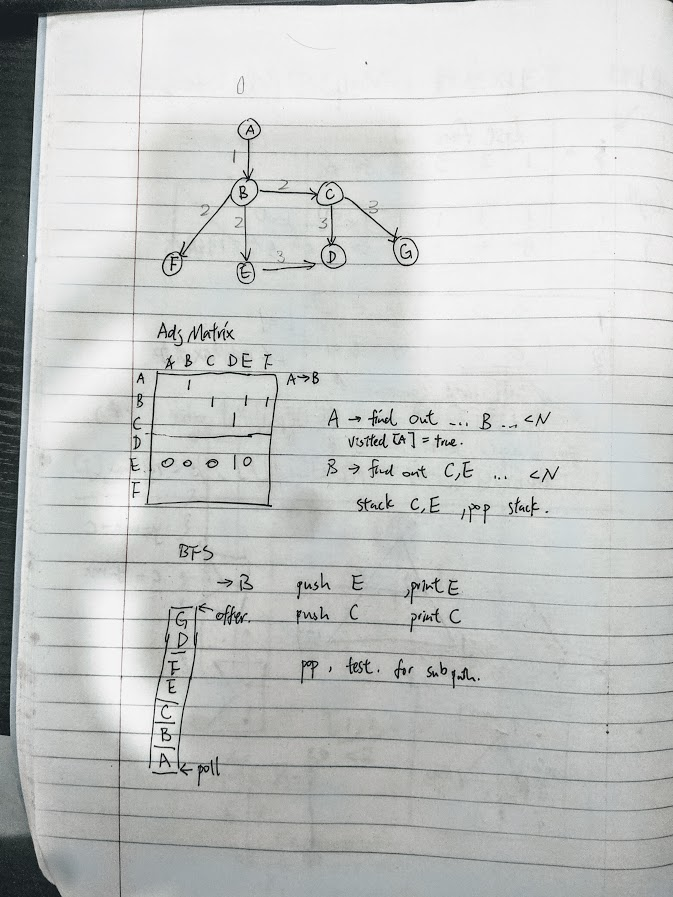 0
A
1
B 2 C
2 2 3 3
F E 3 D G
Adj Matrix
A B C D E F
A 1 A→B
B 1 1 1
C 1
D
E 0 0 0 1 0
F
A → find out ... B ... <N
visited [A] = true.
B → find out C,E ... <N
stack C,E , pop stack.
BFS
→ B push E , print E
G ← offer. push C print C
D
F pop , test. for subpath.
E
C
B
A ← poll